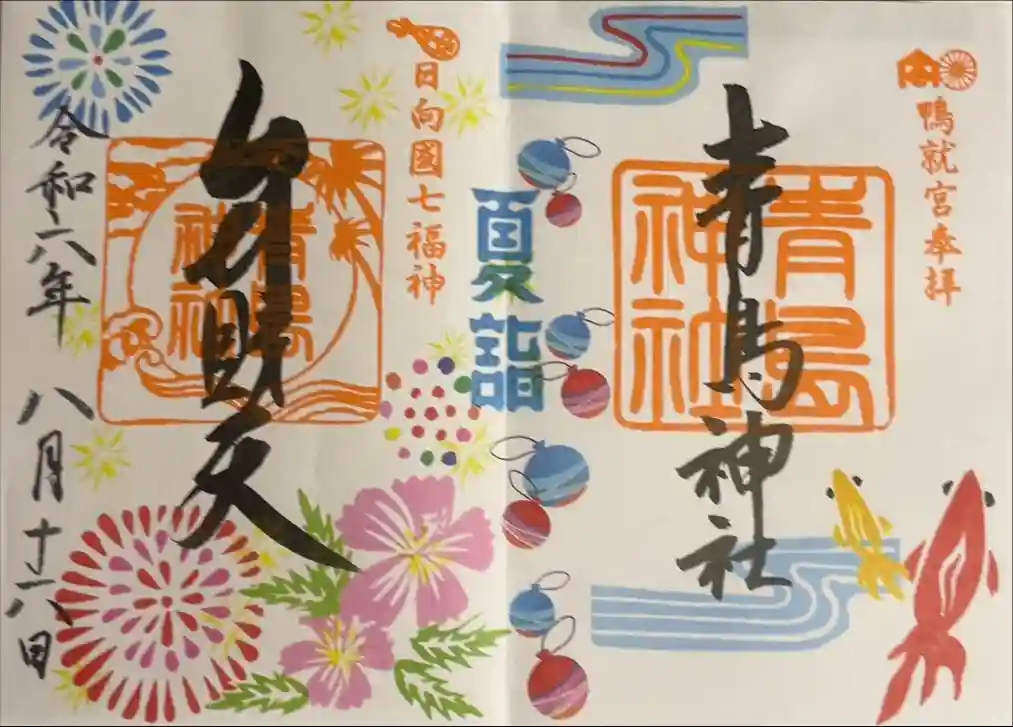 鴨就宮奉拝
青島神社
青島
神社
夏詣
日向國七福神
弁財天
青島
神社
令和六年 八月十六日